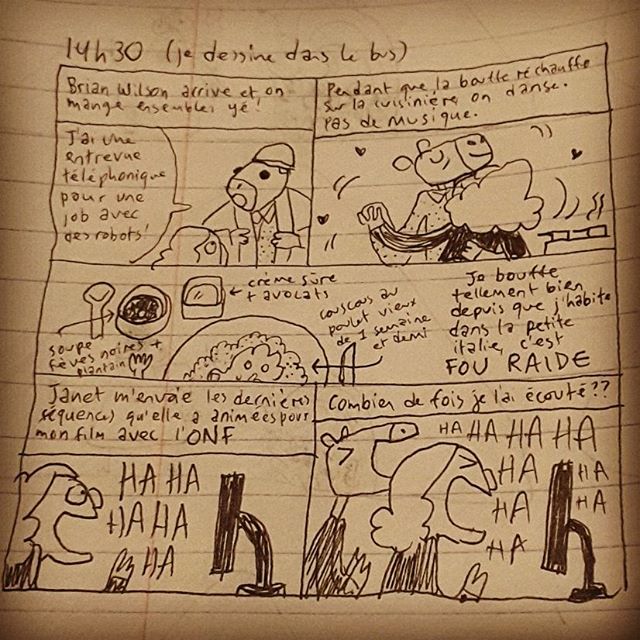 14h30 (je dessine dans le bus)
Brian Wilson arrive et on
mange ensembles yé!
Pendant que la bouffe réchauffe
sur la cuisinière on danse.
Pas de musique.
J'ai une
entrevue
téléphonique
pour une
job avec
des robots!
soupe
fèves noires +
plantain
crème sûre
+ avocats
couscous au
poulet vieux
de 1 semaine
et demi
Je bouffe
tellement bien
depuis que j'habite
dans la petite
italie, c'est
FOU RAIDE
Janet m'envoie les dernières
séquences qu'elle a animées pour
mon film avec l'ONF
Combien de fois je l'ai écouté??
HA HA
HA HA
HA
HA HA HA HA
HA HA
HA HA
HA